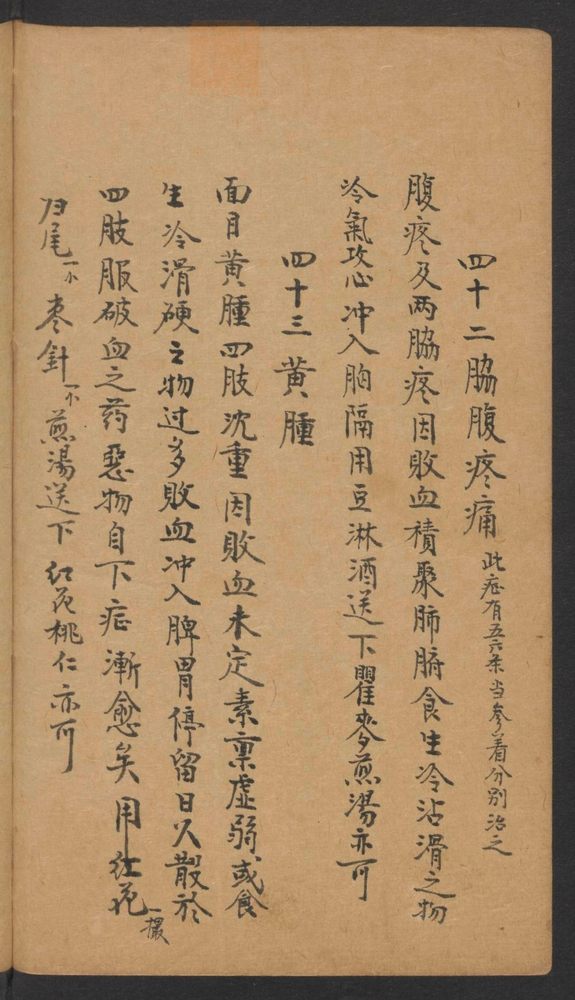 四十二脇腹疼痛 此症有五六条当参着分别治之
腹疼及两脇疼因败血積聚肺腑食生冷沾滑之物
冷氣攻心冲入胸隔用豆淋酒送下瞿麥煎湯亦可
四十三黄腫
面目黄腫四肢沈重因败血未定素禀虚弱或食
生冷滑硬之物过多败血冲入脾胃停留日久散於
四肢服破血之药惡物自下症漸愈矣用红花一撮
归尾一小枣針一小煎湯送下红花桃仁亦可